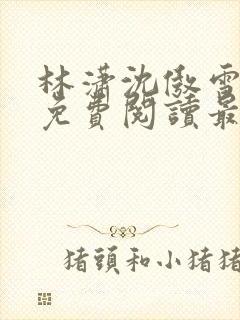 林瀟沈傲雪
免費閱讀最
猪頭和小猪猪